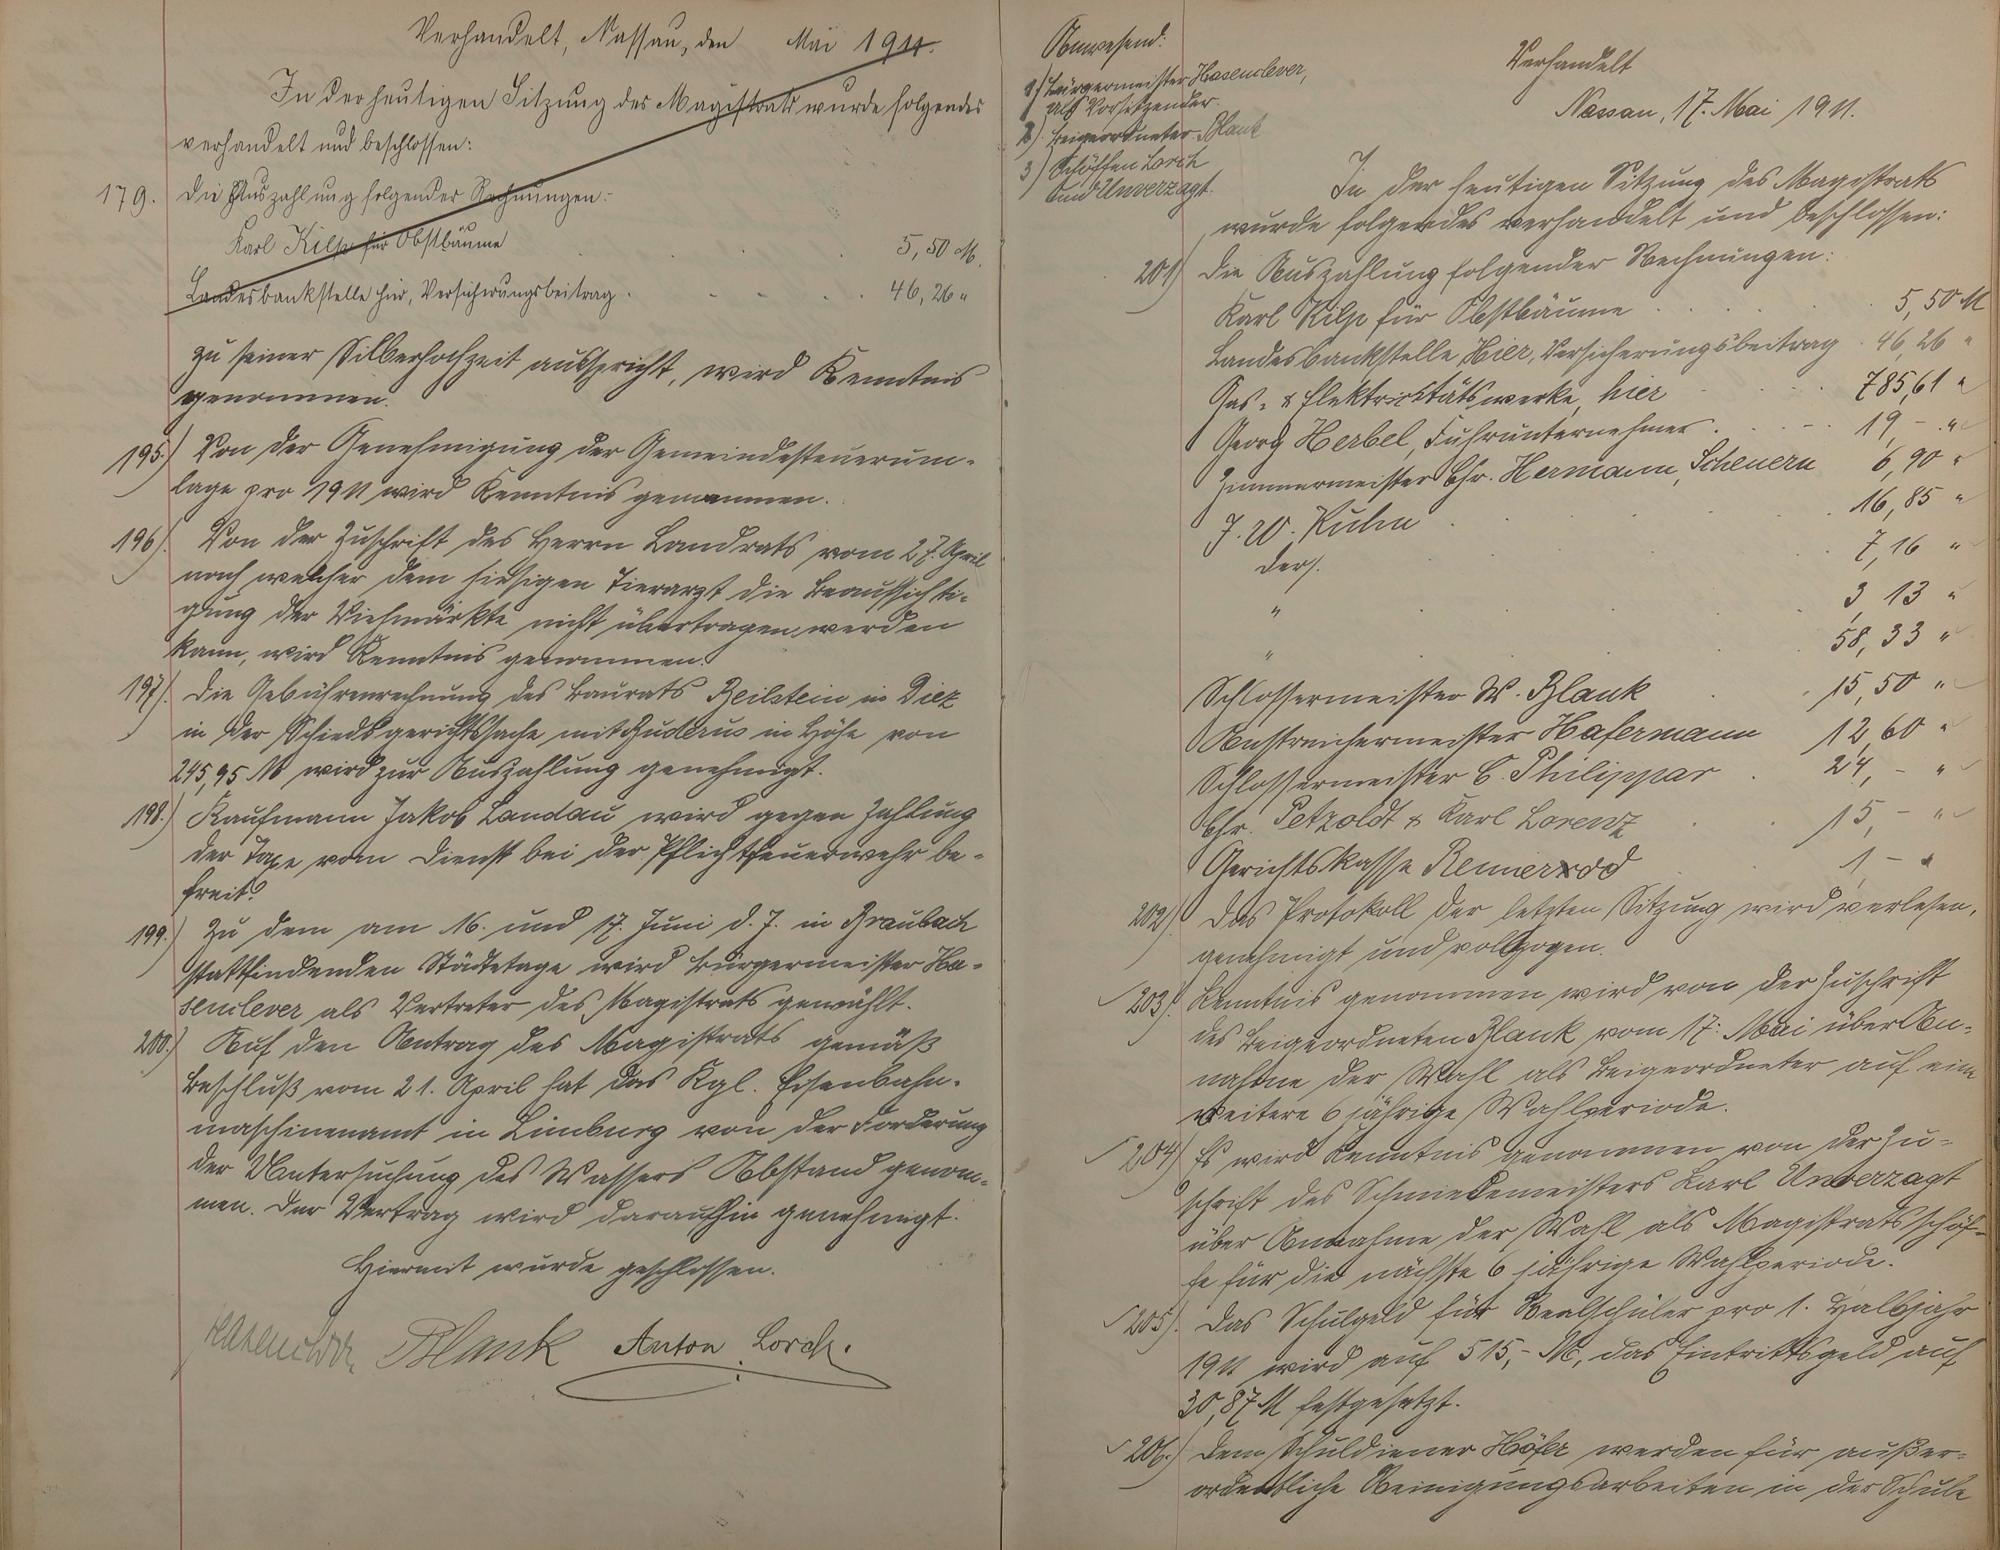 Verhandelt, Nassau, den Mai 1911.
In der heutigen Sitzung des Magistrats wurde folgendes
verhandelt und beschlossen:
179. Die Auszahlung folgender Rechnungen:
Karl Kilp für Obstbäume 5,50 M.
Landesbankstelle hier, Versicherungsbeitrag 46,26 "
zu seiner Silberhochzeit ausspricht, wird Kenntnis
genommen.
195.) Von der Genehmigung der Gemeindesteuerum-
lage pro 1911 wird Kenntnis genommen.
196.) Von der Zuschrift des Herrn Landrats vom 27. April
nach welcher dem hiesigen Tierarzt die Beaufsichti-
gung der Viehmärkte nicht übertragen werden
kann, wird Kenntnis genommen.
197). Die Gebührenrechnung des Baurats Beilstein in Diez
in der Schiedsgerichtssache mit Buderus in Höhe von
245,95 M wird zur Auszahlung genehmigt.
198.) Kaufmann Jakob Landau wird gegen Zahlung
der Taxe vom Dienst bei der Pflichtfeuerwehr be-
freit.
199.) Zu dem am 16. und 17. Juni d. J. in Braubach
stattfindenden Städtetage wird Bürgermeister Ha-
senclever als Vertreter des Magistrats gewählt.
200.) Auf den Antrag des Magistrats gemäß
Beschluß vom 21. April hat das Kgl. Eisenbahn-
maschinenamt in Limburg von der Forderung
der Untersuchung des Wassers Abstand genom-
men. Der Vertrag wird daraufhin genehmigt.
Hiermit wurde geschlossen.
Hasenclever Blank Anton Lorch.
Anwesend:
1) Bürgermeister Hasenclever,
als Vorsitzender.
2). Beigeordneter Blank
3) Schöffen Lorch
und Unverzagt.
Verhandelt
Nassau, 17. Mai 1911.
In der heutigen Sitzung des Magistrats
wurde folgendes verhandelt und beschlossen:
201) Die Auszahlung folgender Rechnungen:
Karl Kilp für Obstbäume 5,50 M
Landesbankstelle, Hier, Versicherungsbeitrag 46,26 "
Gas- & Elektricitätswerke, hier 785,61 "
Georg Herbel, Fuhrunternehmer 19,- "
Zimmermeister Chr. Hermann, Scheuern 6,90 "
J. W. Kuhn 16,85 "
ders. 7,16 "
" 3,13 "
" 58,33 "
Schlossermeister W. Blank 15,50 "
Anstreichermeister Hafermann 12,60 "
Schlossermeister C. Philippar 24,- "
Chr. Petzoldt & Karl Lorenz 15,- "
Gerichtskasse Rennerod 1,- "
202). Das Protokoll der letzten Sitzung wird verlesen,
genehmigt und vollzogen.
203). Kenntnis genommen wird von der Zuschrift
des Beigeordneten Blank vom 17. Mai über An-
nahme der Wahl als Beigeordneter auf eine
weitere 6 jährige Wahlperiode.
204) Es wird Kenntnis genommen von der Zu-
schrift des Schmiedemeisters Karl Unverzagt
über Annahme der Wahl als Magistratsschöf-
fe für die nächste 6 jährige Wahlperiode.
205). Das Schulgeld für Realschüler pro 1. Halbjahr
1911 wird auf 515,- M, das Eintrittsgeld auf
30,87 M festgesetzt.
206.) Dem Schuldiener Höfer werden für außer-
ordentliche Reinigungsarbeiten in der Schule